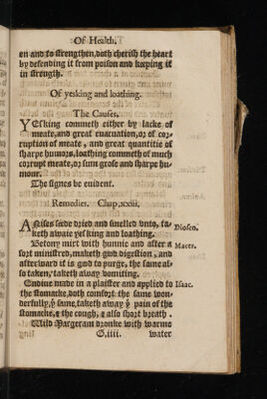 Of Health.
en and to strengthen, doth cherish the heart
by defending it from poison and keeping it
in strength.
Of yesking and loathing.
The Causes.
YEsking commeth either by lacke of
meate, and great evacuation, or of cor-
ruption of meate, and great quantitie of
sharpe humors, loathing commeth of much
corrupt meate, or sum grose and sharpe hu-
mour.
The signes be euident.
Remedies. Chap, xxiii.
ANises séede dried and smelled vnto, ta- Diosco.
keth awaie yesking and loathing.
Betony mixt with hunnie and after a Macer.
sort ministred, maketh gud digestion, and
afterward it is gud to purge, the same al-
so taken, taketh away vomiting.
Endiue made in a plaister and applied to Isaac.
the stomacke, doth comfort the same won-
derfully, ye same, taketh away ye pain of the
stomacke, & the cough, & also short breath.
Wild Margeram dronke with warme
G. iiii. water